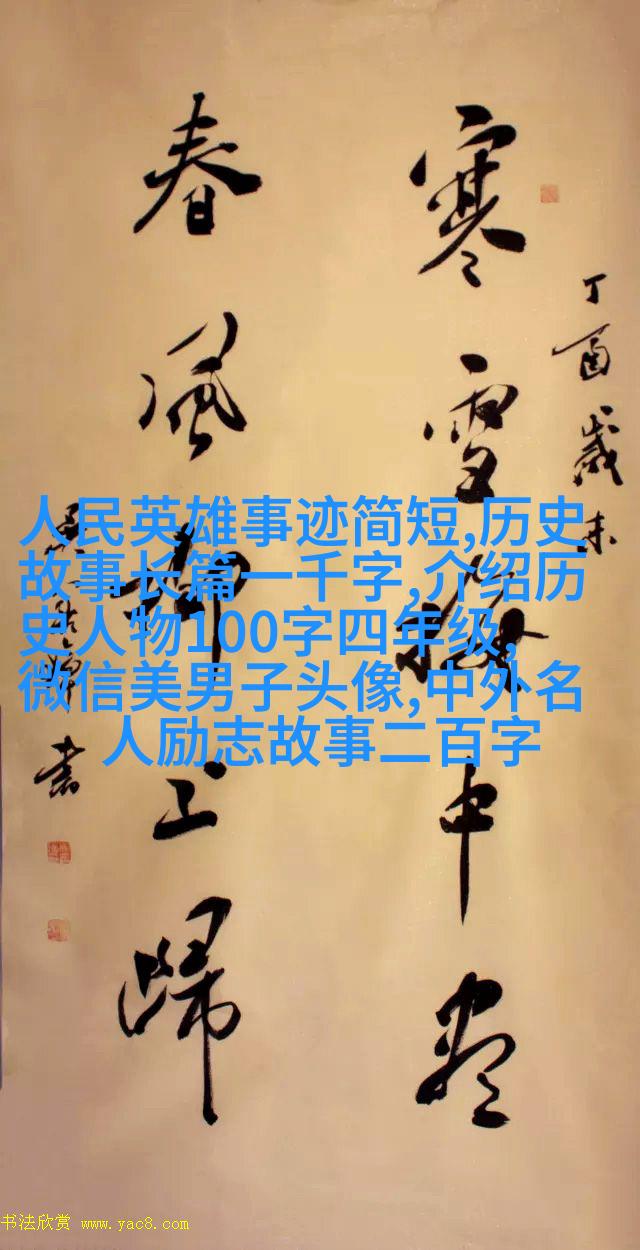 丁酉岁末
寒雪梅中尽
春風柳上歸
书
人民英雄事迹简短,历史
故事长篇一千字,介绍历
史人物100字四年级,
微信美男子头像,中外名
人励志故事二百字
书法欣赏 www.yac8.com